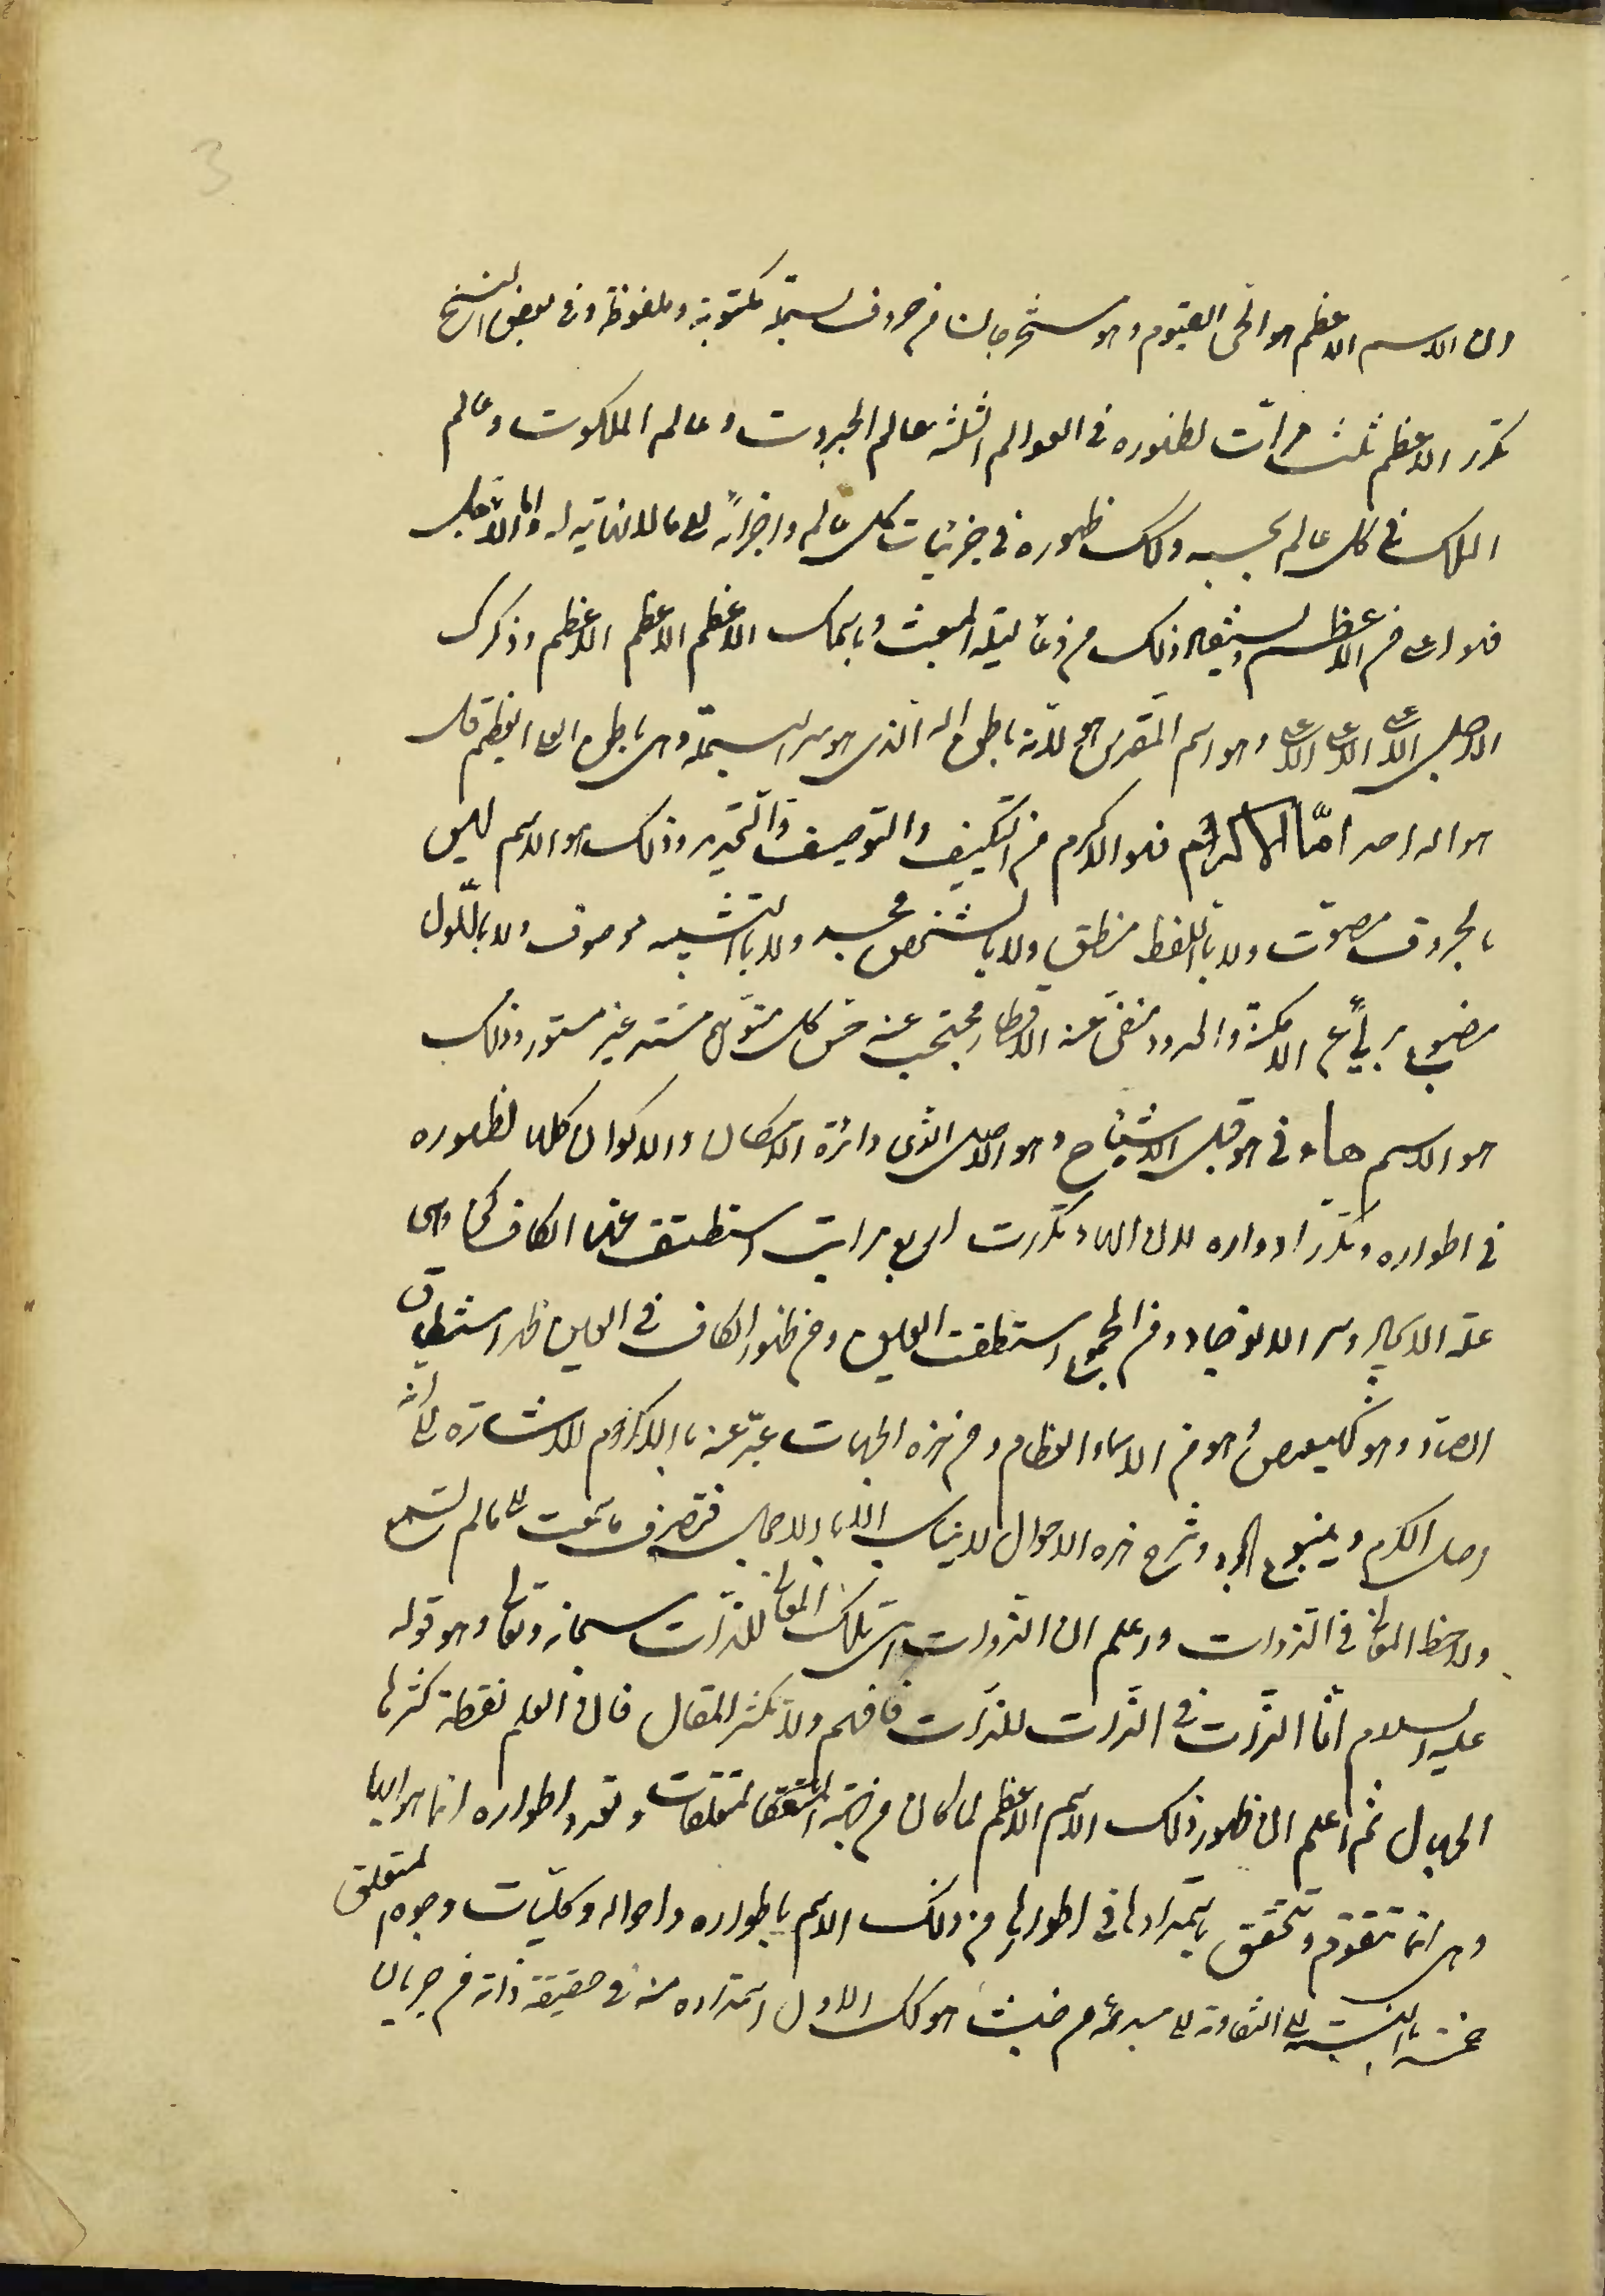 3
وان الاسم الاعظم هو الحی القیوم وهو مستخرجان من حروف البسملة مکتوبة وملفوظة وفی بعض النسخ
تکرر الاعظم ثلث مرات لظهوره فی العوالم الثلثة عالم الجبروت وعالم الملکوت وعالم
الملک فی کل عالم بحسبه وکک ظهوره فی جزئیات کل عالم واجزائه الی ما لا نهایة له واما الاجل
فهو اعلی من الاعظم ذلک من دعاء لیلة المبعث وباسمک الاعظم الاعظم الاعظم وذکرک
الاجل الاعلی الاعلی الاعلی وهو اسم المقدس هو لانه باطن الله الذی هو سر البسملة وهی باطن العلی العظیم قل
هو الله احد امّا الاکرم فهو الاکرم من التکییف والتوصیف والتحدید وذلک هو الاسم لیس
بالحروف مصوّت ولا باللفظ منطق ولا بالشخص مجسد ولا بالتشبیه موصوف ولا باللون
مصبوغ برئ عن الامکنة والحدود منفی عنه الاقطار محتجب عنه حس کل متوهم مستتر غیر مستور وذلک
هو الاسم هاء فی هو قبل الاشباع وهو الاصل الذی دائرة الامکان والاکوان کلها لظهوره
فی اطواره وتکرر ادواره لان الهاء تکررت اربع مرات استنطق عنها الکاف کن وهی
علة الایجاد وسر الانوجاد ومن المجموع استنطقت العین ومن ظهور الکاف فی العین ظهر استنطاق
الصاد وهو کهیعص وهو من الاسماء العظام ومن هذه الجهات عبّر عنه بالاکرم للاشارة الی انه
اصل الکرم وینبوع الجود وشرح هذه الاحوال لا یناسب الا بالاجمال فتصرف ما سمعت الی ما لم تسمع
ولاحظ المعانی فی الذوات واعلم ان الذوات تلک المعانی للذات سبحانه وتعالی وهو قوله
علیه السلام انا الذات فی الذوات للذات فافهم ولا تکثر المقال فان العلم نقطة کثرها
الجهال ثم اعلم ان ظهور ذلک الاسم الاعظم لما کان من جهة المتعلقات وتعدد اطواره انما هو الیها
وهی انما تتقوم وتتحقق باستمدادها فی اطوارها من ذلک الاسم باطواره واحواله وکلیات وجوه المتعلق
خمسة بالنسبة الی التفاوته الی مبدئه من حیث هو کک الاول استمداده منه فی حقیقة ذاته من جریان